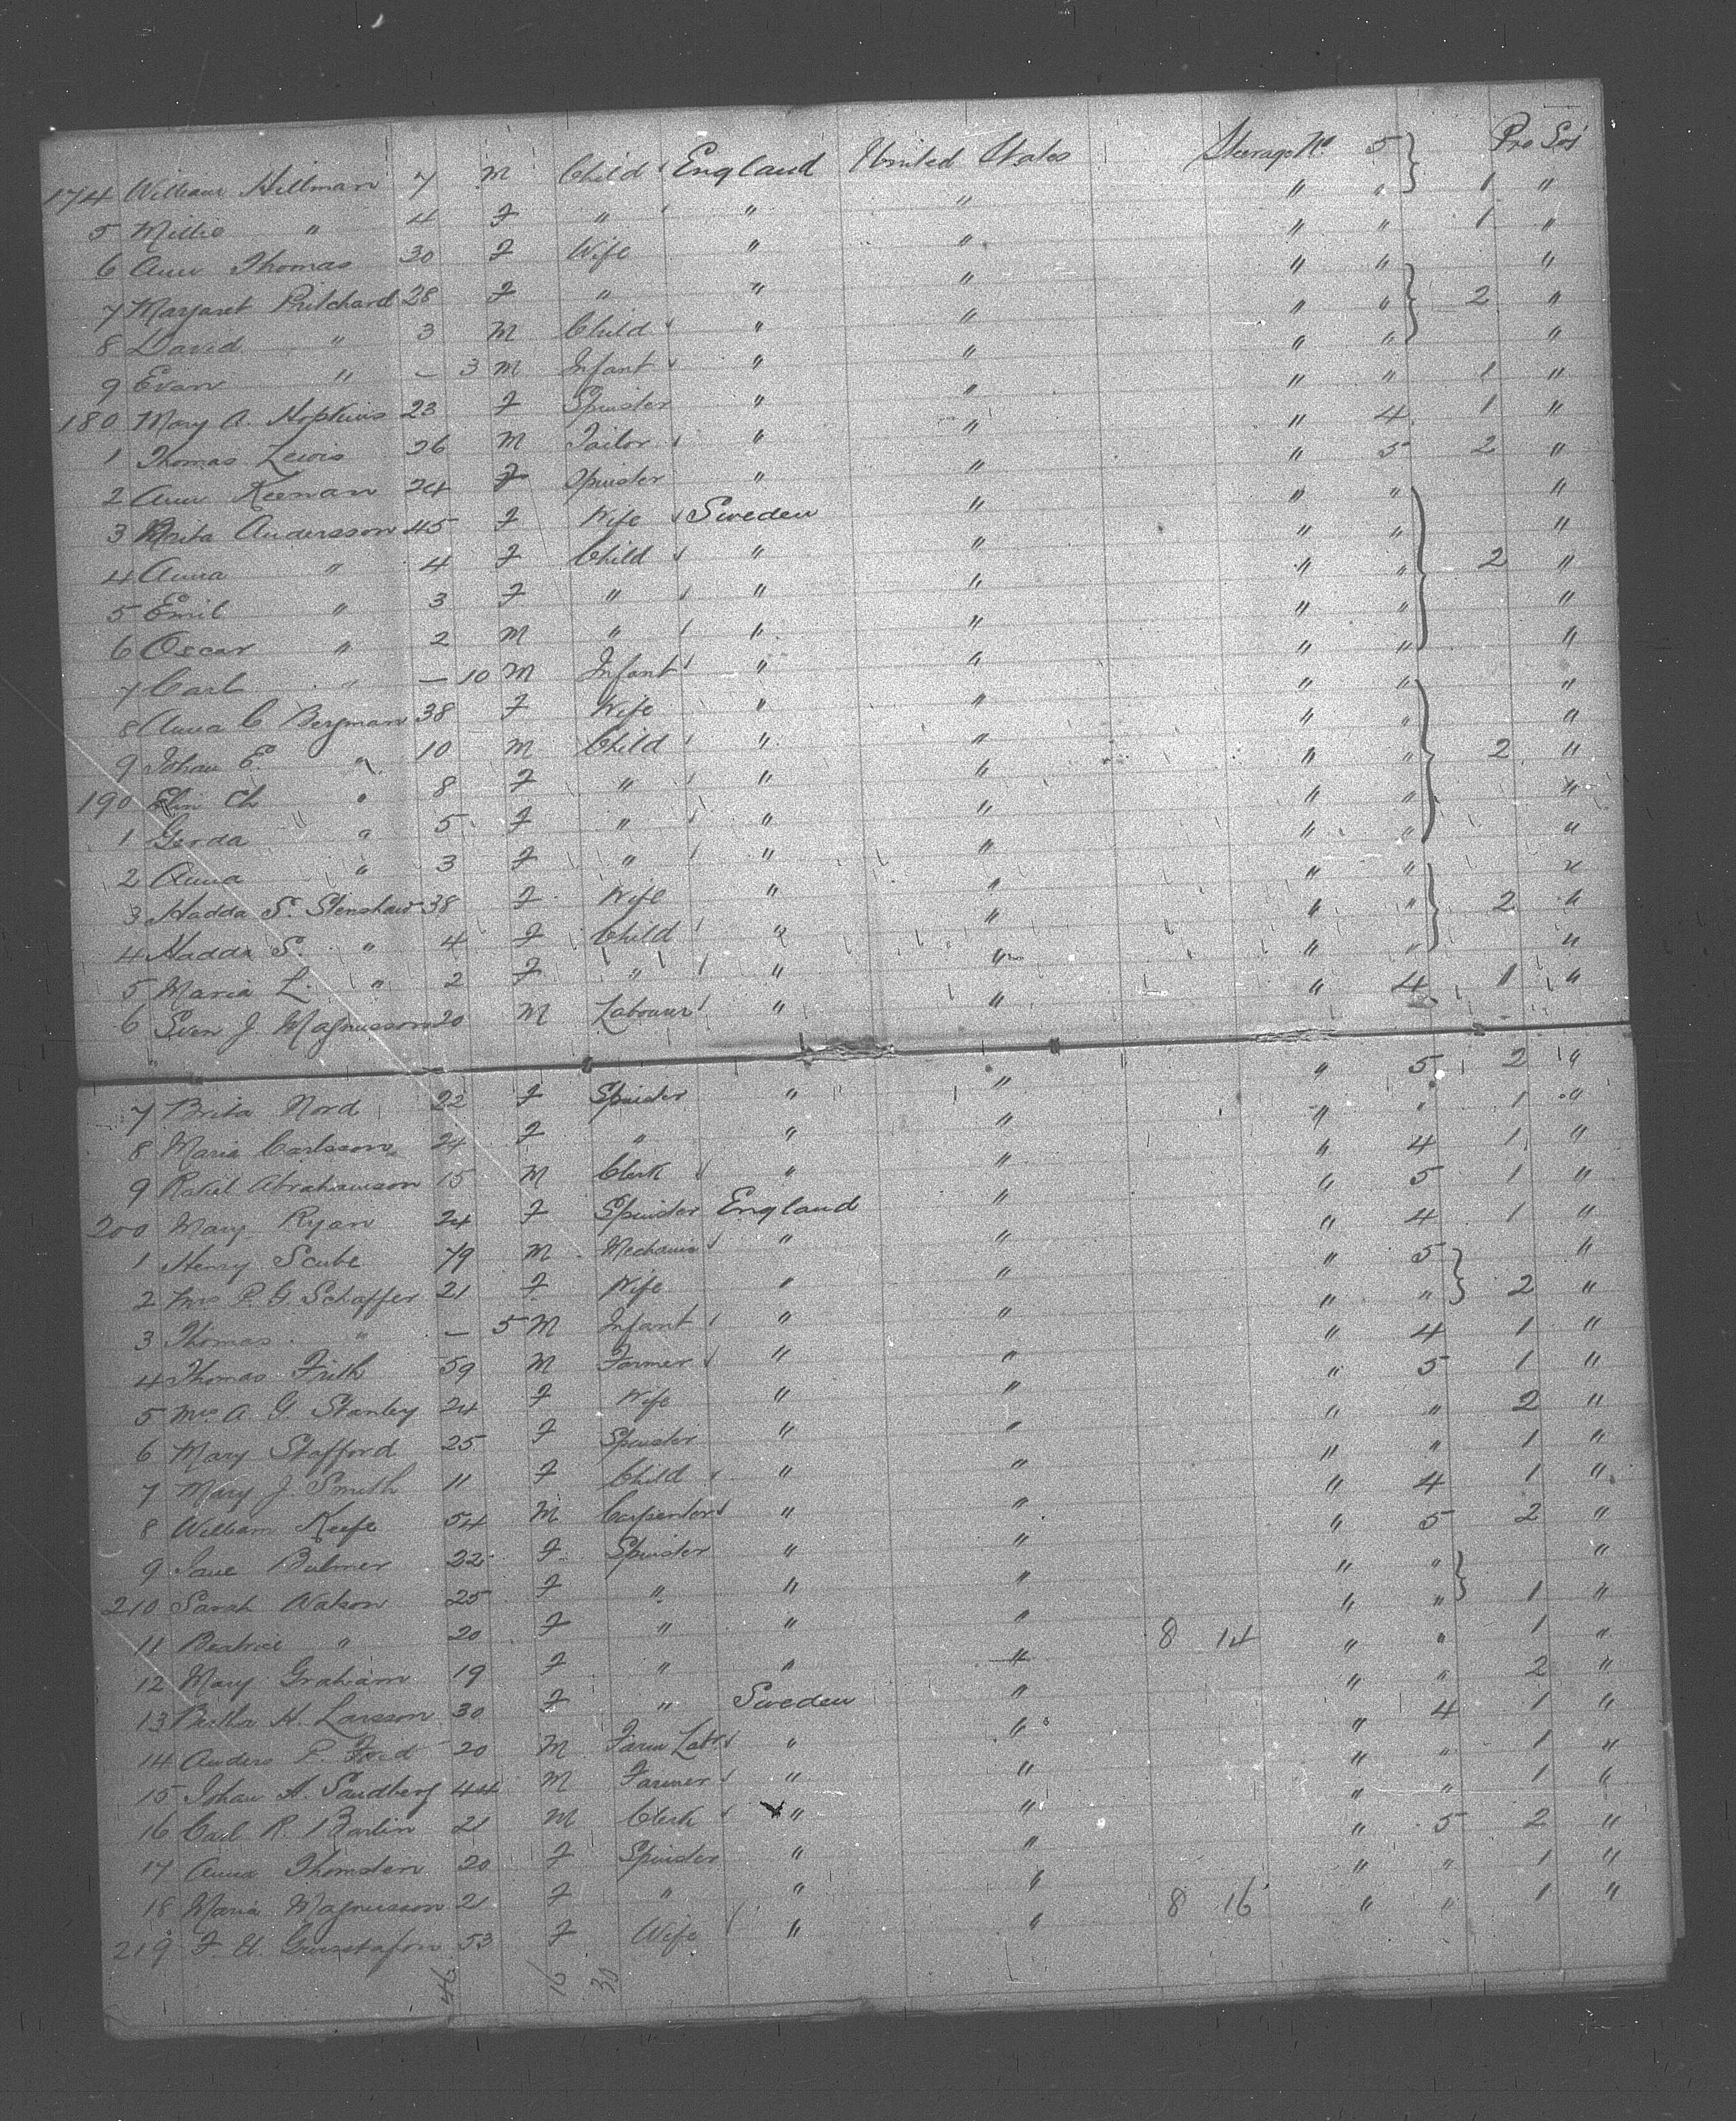 174 William Hillman 7 M Child England United States Steerage No 5 Pro Soj
5 Millie " 4 F " " " " " 1 "
6 Ann Thomas 30 F Wife " " " " 1 "
7 Margaret Pritchard 28 F " " " " " "
8 David " 3 M Child " " " " 2 "
9 Evan " — 3 M Infant " " " " "
180 Mary A. Hopkins 23 F Spinster " " " " 1 "
1 Thomas Lewis 26 M Tailor " " " 4 1 "
2 Ann Keenan 24 F Spinster " " " 5 2 "
3 Brita Andersson 45 F Wife Sweden " " " "
4 Anna " 4 F Child " " " " "
5 Emil " 3 F " " " " " 2 "
6 Oscar " 2 M " " " " " "
7 Carl " — 10 M Infant " " " " "
8 Anna C Bergman 38 F Wife " " " " "
9 Johan E. " 10 M Child " " " " "
190 Elin Ch " 8 F " " " " " 2 "
1 Gerda " 5 F " " " " " "
2 Anna " 3 F " " " " " "
3 Hadda S. Stenshaw 38 F Wife " " " " "
4 Hadda S. " 4 F Child " " " " 2 "
5 Maria L. " 2 F " " " " " "
6 Sven J. Magnusson 20 M Labourer " " " 4 1 "
7 Brita Nord 22 F Spinster " " " 5 2 "
8 Maria Carlsson 24 F " " " " " 1 "
9 Rakel Abrahamson 15 M Clerk " " " 4 1 "
200 Mary Ryan 24 F Spinster England " " 5 1 "
1 Henry Scube 19 M Mechanic " " " 4 1 "
2 Mrs P. G. Schaffer 21 F Wife " " " 5 "
3 Thomas " — 5 M Infant " " " " 2 "
4 Thomas Frith 59 M Farmer " " " 4 1 "
5 Mrs A. G. Stanley 24 F Wife " " " 5 1 "
6 Mary Stafford 25 F Spinster " " " " 2 "
7 Mary J Smith 11 F Child " " " " 1 "
8 William Keefe 54 M Carpenter " " " 4 1 "
9 Jane Bulmer 22 F Spinster " " " 5 2 "
210 Sarah Watson 25 F " " " " " "
11 Beatrice " 20 F " " " " " 1 "
12 Mary Graham 19 F " " " 8 14 " " 1 "
13 Bertha H. Larsson 30 F " Sweden " " " 2 "
14 Anders P. Ford 20 M Farm Labr " " " 4 1 "
15 Johan A. Sandberg 44 M Farmer " " " " 1 "
16 Carl R. Barlin 21 M Clerk " " " " 1 "
17 Anna Thomsten 20 F Spinster " " " 5 2 "
18 Maria Magnusson 21 F " " " " " 1 "
219 F. U. Gustafson 53 F Wife " " 8 16 " " 1 "
46 16 30